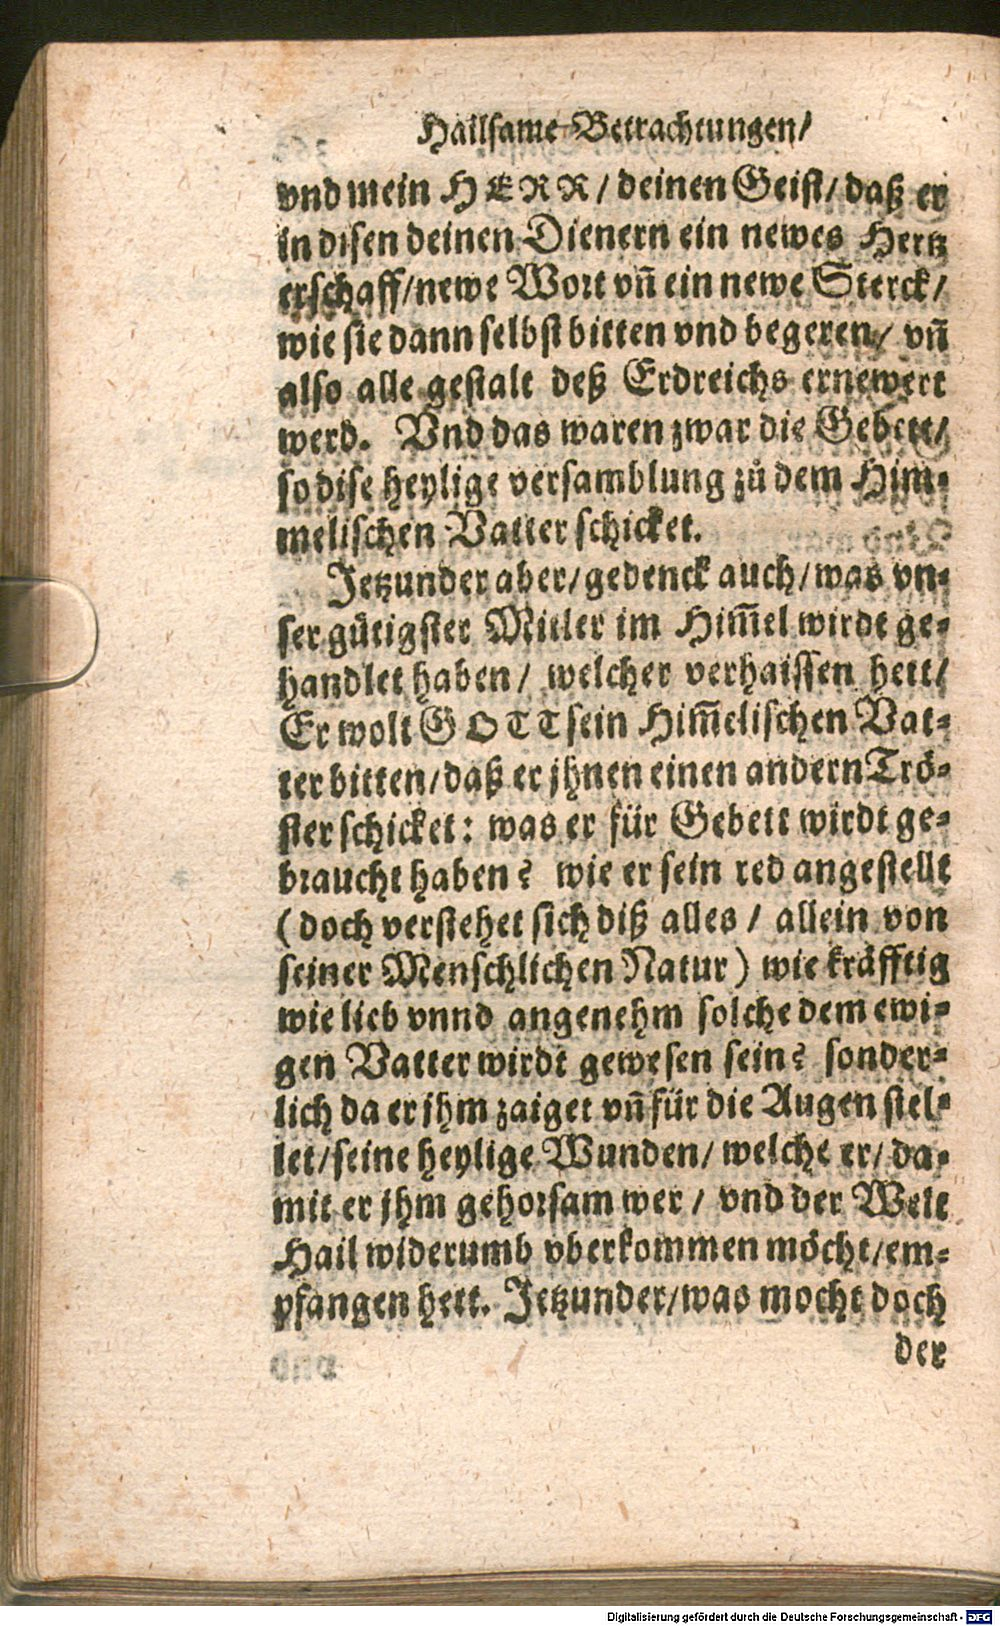 Hailsame Betrachtungen/
vnd mein HERR/ deinen Geist/ daß er
in disen deinen Dienern ein newes Hertz
erschaff/ newe Wort vñ ein newe Sterck/
wie sie dann selbst bitten vnd begeren/ vñ
also alle gestalt deß Erdreichs ernewert
werd. Vnd das waren zwar die Gebett/
so dise heylige versamblung zů dem Him-
melischen Vatter schicket.
Jetzunder aber/ gedenck auch/ was vn-
ser gütigster Mitler im Him̃el wirdt ge-
handlet haben/ welcher verhaissen hett/
Er wolt GOTT sein Him̃elischen Vat-
ter bitten/ daß er jhnen einen andern Trö-
ster schicket: was er für Gebett wirdt ge-
braucht haben? wie er sein red angestellt
(doch verstehet sich diß alles/ allein von
seiner Menschlichen Natur) wie kräfftig
wie lieb vnnd angenehm solche dem ewi-
gen Vatter wirdt gewesen sein? sonder-
lich da er jhm zaiget vñ für die Augen stel-
let/ seine heylige Wunden/ welche er/ da-
mit er jhm gehorsam wer/ vnd der Welt
Hail widerumb vberkommen möcht/ em-
pfangen hett. Jetzunder/ was mocht doch
der
Digitalisierung gefördert durch die Deutsche Forschungsgemeinschaft - DFG